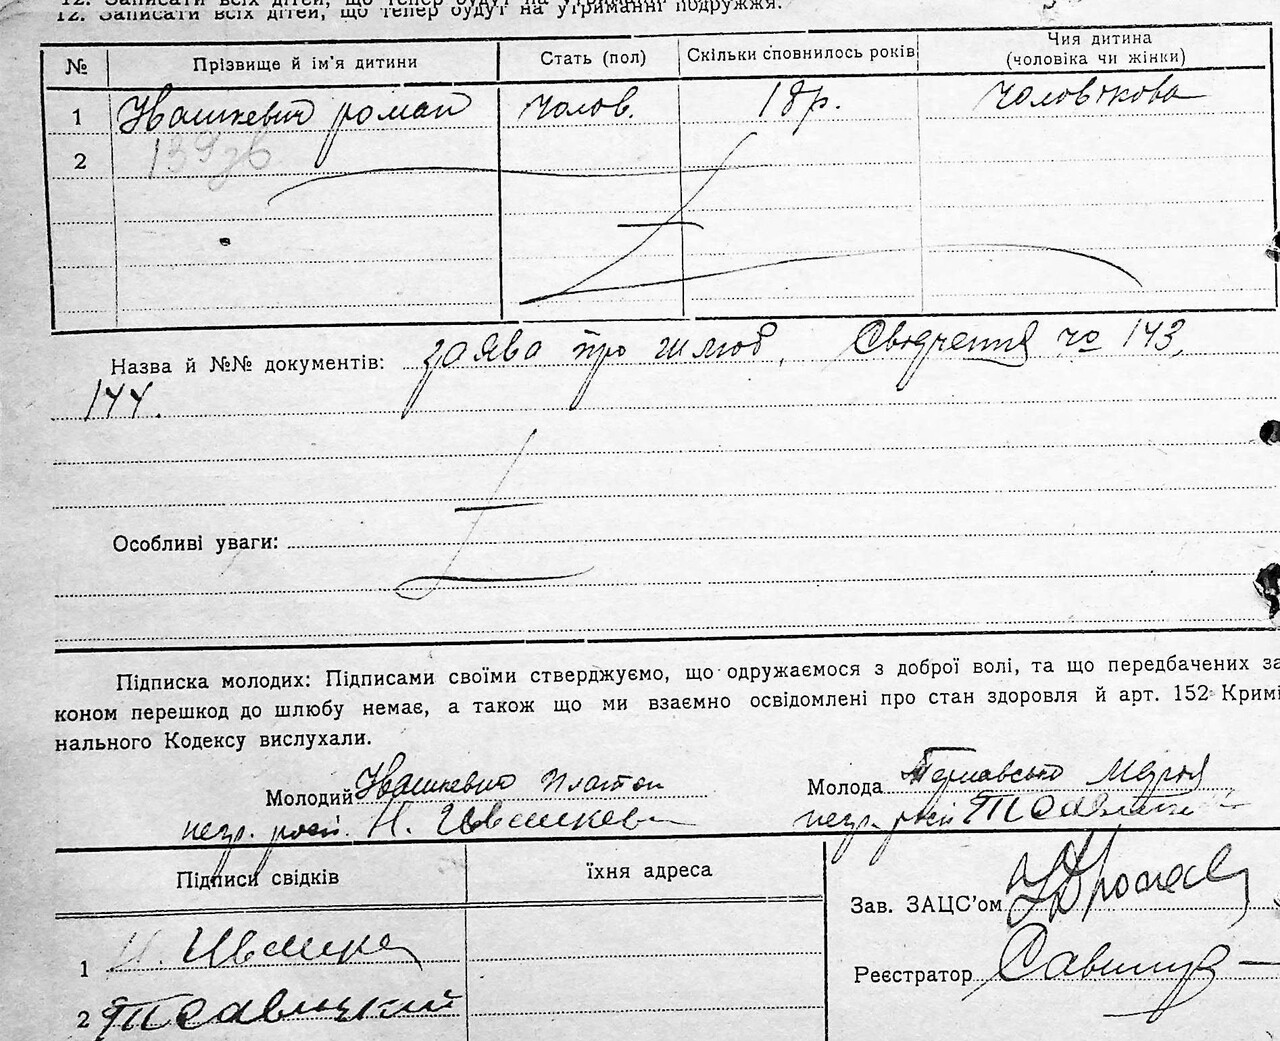 12. Записати всіх дітей, що тепер будут на утриманні подружжя.
№ Прізвище й ім'я дитини Стать (пол) Скільки сповнилось років Чия дитина (чоловіка чи жінки)
1 Ивашкевич роман чолов. 18р. чоловікова
2 139зв
Назва й №№ документів: заява про шлюб, Свідчення чо 143,
144.
Особливі уваги:
Підписка молодих: Підписами своїми стверджуємо, що одружаємося з доброї волі, та що передбачених за
коном перешкод до шлюбу немає, а також що ми взаємно освідомлені про стан здоровля й арт. 152 Кримі
нального Кодексу вислухали.
Молодий Ивашкевич Платон
Молода Марія
негр. росп. И. Ивашкеви
негр. росп
Підписи свідків їхня адреса
Зав. ЗАЦС'ом
1 И. Ивашке
Реєстратор
2